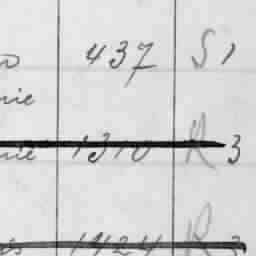 437 S1
nie
nie 1310 R 3
1424 R 3